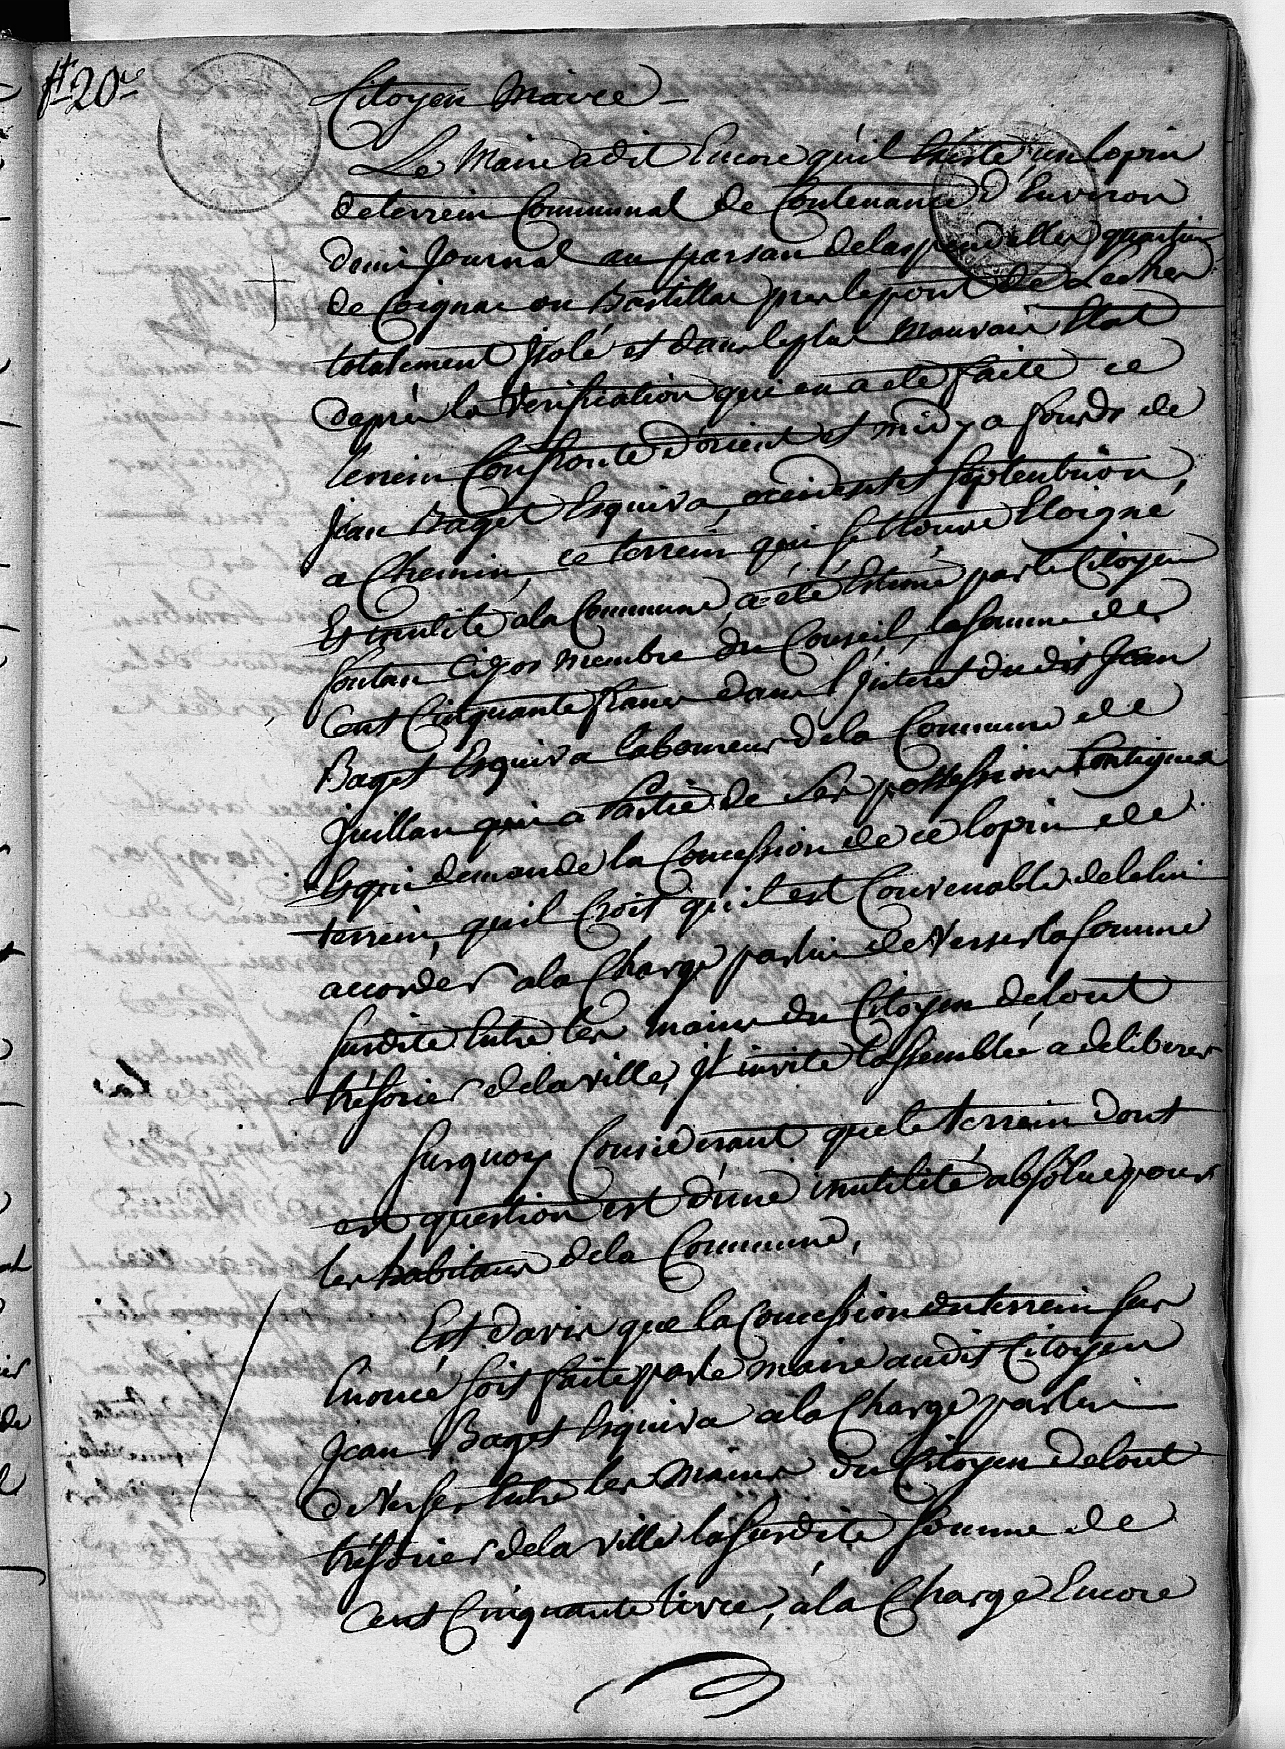 f° 20e
Citoyen Maire
Le Maire a dit Encore quil Existe, un lopin
de terrein Communal de Contenance d'Environ
demi Journal au parsan delas quartier
de Coignac ou Bastillac pres le pont de
totalement Isolé et dans le plus mauvais Etat
dapres la verification qui en a eté faite ce
terrein Confronte d'orient et midy a fonds de
Jean Baget Esquiva, occident et Septentrion,
a Chemin, ce terrein qui se trouve Eloigné
Et inutile a la Commune, a été Estimé par le Citoyen
foutan membre du Conseil, la somme de
Cent Cinquante francs dans l'interet du dit Jean
Baget Esquiva laboureur de la Commune de
Juillan qui a partie de Ses possessions Contigues
Et qui demande la Concession de ce lopin de
terrein, quil Croit quil est Convenable de le lui
accorder a la Charge par lui de Verser la somme
susdite Entre les mains du Citoyen delout
trésorier de la ville, Il invite lassemblée a deliberer
Surquoy Considerant que le terrein dont
est question est d'une inutilité absolue pour
les habitans de la Commune,
Est davis que la Concession du terrein sus
Enoncé soit faite par le maire audit Citoyen
Jean Baget Esquiva a la Charge par lui
de Verser Entre les mains du Citoyen Delout
trésorier de la ville la susdite somme de
Cent Cinquante livres, a la Charge Encore